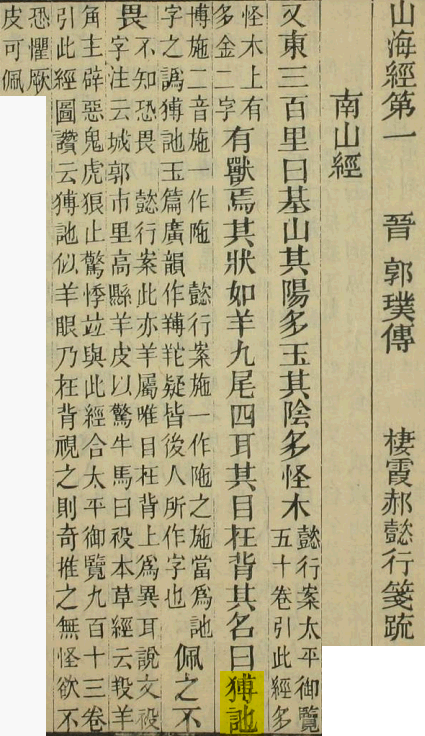 山海經第一 晉 郭璞傳 棲霞郝懿行箋疏
南山經
又東三百里曰基山其陽多玉其陰多怪木
懿行案太平御覽
五十卷引此經多
怪木上有
多金二字
有獸焉其狀如羊九尾四耳其目在背其名曰猼訑
博施二音施一作陁 懿行案施一作陁之施當爲訑
字之譌猼訑玉篇廣韻作疑皆後人所作字也
佩之不
畏
不知恐畏 懿行案此亦羊屬唯目在背上爲異耳說文祋
字注云城郭市里高縣羊皮以驚牛馬曰祋本草經云羖羊
角主辟惡鬼虎狼止驚悸竝與此經合太平御覽九百十三卷
引此經圖讚云猼訑似羊眼乃在背視之則奇推之無怪欲不
恐懼厥
皮可佩